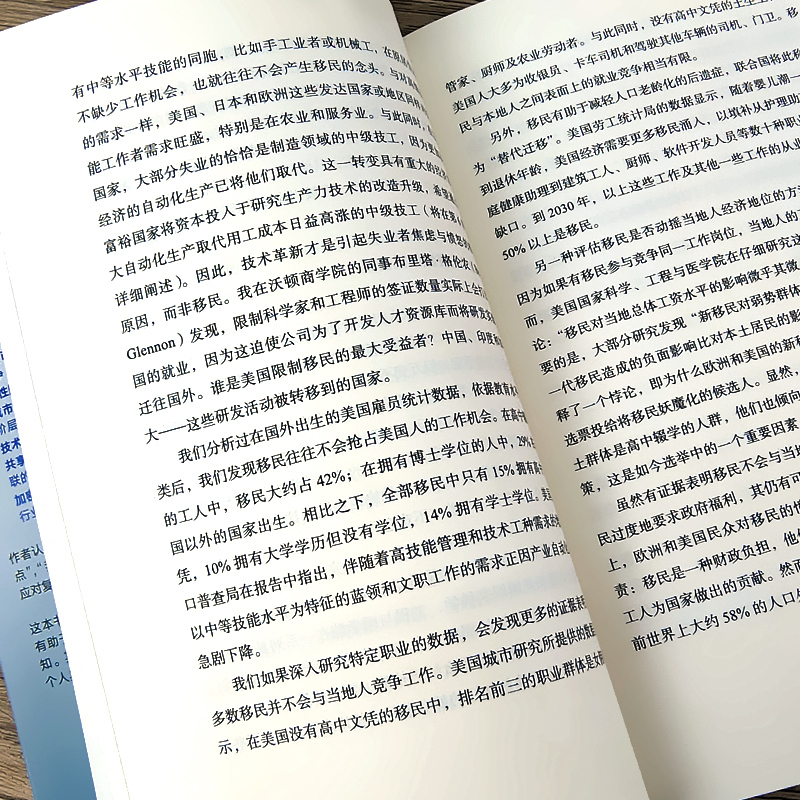 有中等水平技能的同胞，比如手工业者或机械工，在原
不缺少工作机会，也就往往不会产生移民的念头。与对
的需求一样，美国、日本和欧洲这些发达国家或地区同样
能工作者需求旺盛，特别是在农业和服务业。与此同时，
国家，大部分失业的恰恰是制造领域的中级技工，因为
经济的自动化生产已将他们取代。这一转变具有重大的
富裕国家将资本投入于研究生产力技术的改造升级，希望
大自动化生产取代用工成本日益高涨的中级技工（将在第
详细阐述）。因此，技术革新才是引起失业者焦虑与愤怒
原因，而非移民。我在沃顿商学院的同事布里塔·格伦农
Glennon）发现，限制科学家和工程师的签证数量实际上会
国的就业，因为这迫使公司为了开发人才资源库而将研发
迁往国外。谁是美国限制移民的最大受益者？中国、印度和
大——这些研发活动被转移到的国家。
我们分析过在国外出生的美国雇员统计数据，依据教育水
类后，我们发现移民往往不会抢占美国人的工作机会。在高中
的工人中，移民大约占42%；在拥有博士学位的人中，29%
国以外的国家出生。相比之下，全部移民中只有15%拥有高
凭，10%拥有大学学历但没有学位，14%拥有学士学位。美国
口普查局在报告中指出，伴随着高技能管理和技术工种需求的
以中等技能水平为特征的蓝领和文职工作的需求正因产业自动
急剧下降。
我们如果深入研究特定职业的数据，会发现更多的证据表
多数移民并不会与当地人竞争工作。美国城市研究所提供的数据
示，在美国没有高中文凭的移民中，排名前三的职业群体是女
管家、厨师及农业劳动者。与此同时，没有高中文凭的土生土
美国人大多为收银员、卡车司机和驾驶其他车辆的司机、门卫。移
民与本地人之间表面上的就业竞争相当有限。
另外，移民有助于减轻人口老龄化的后遗症，联合国将此称
为“替代迁移”。美国劳工统计局的数据显示，随着婴儿潮一
到退休年龄，美国经济需要更多移民涌入，以填补从护理助
庭健康助理到建筑工人、厨师、软件开发人员等数十种职
缺口。到2030年，以上这些工作及其他一些工作的从业
50%以上是移民。
另一种评估移民是否动摇当地人经济地位的方
因为如果有移民参与竞争同一工作岗位，当地人的
而，美国国家科学、工程与医学院在仔细研究这
论：“移民对当地总体工资水平的影响微乎其微
要的是，大部分研究发现“新移民对弱势群体
一代移民造成的负面影响比对本土居民的影
释了一个悖论，即为什么欧洲和美国的新移
选票投给将移民妖魔化的候选人。显然，
土群体是高中辍学的人群，他们也倾向
策，这是如今选举中的一个重要因素
虽然有证据表明移民不会与当地
民过度地要求政府福利，其仍有可
上，欧洲和美国民众对移民的忄
责：移民是一种财政负担，他
工人为国家做出的贡献。然而
前世界上大约58%的人口
性
市
阶层
技术
共享
联的
加密
行业
作者认
点”，“
应对复
这本书
有助于
知。
个人